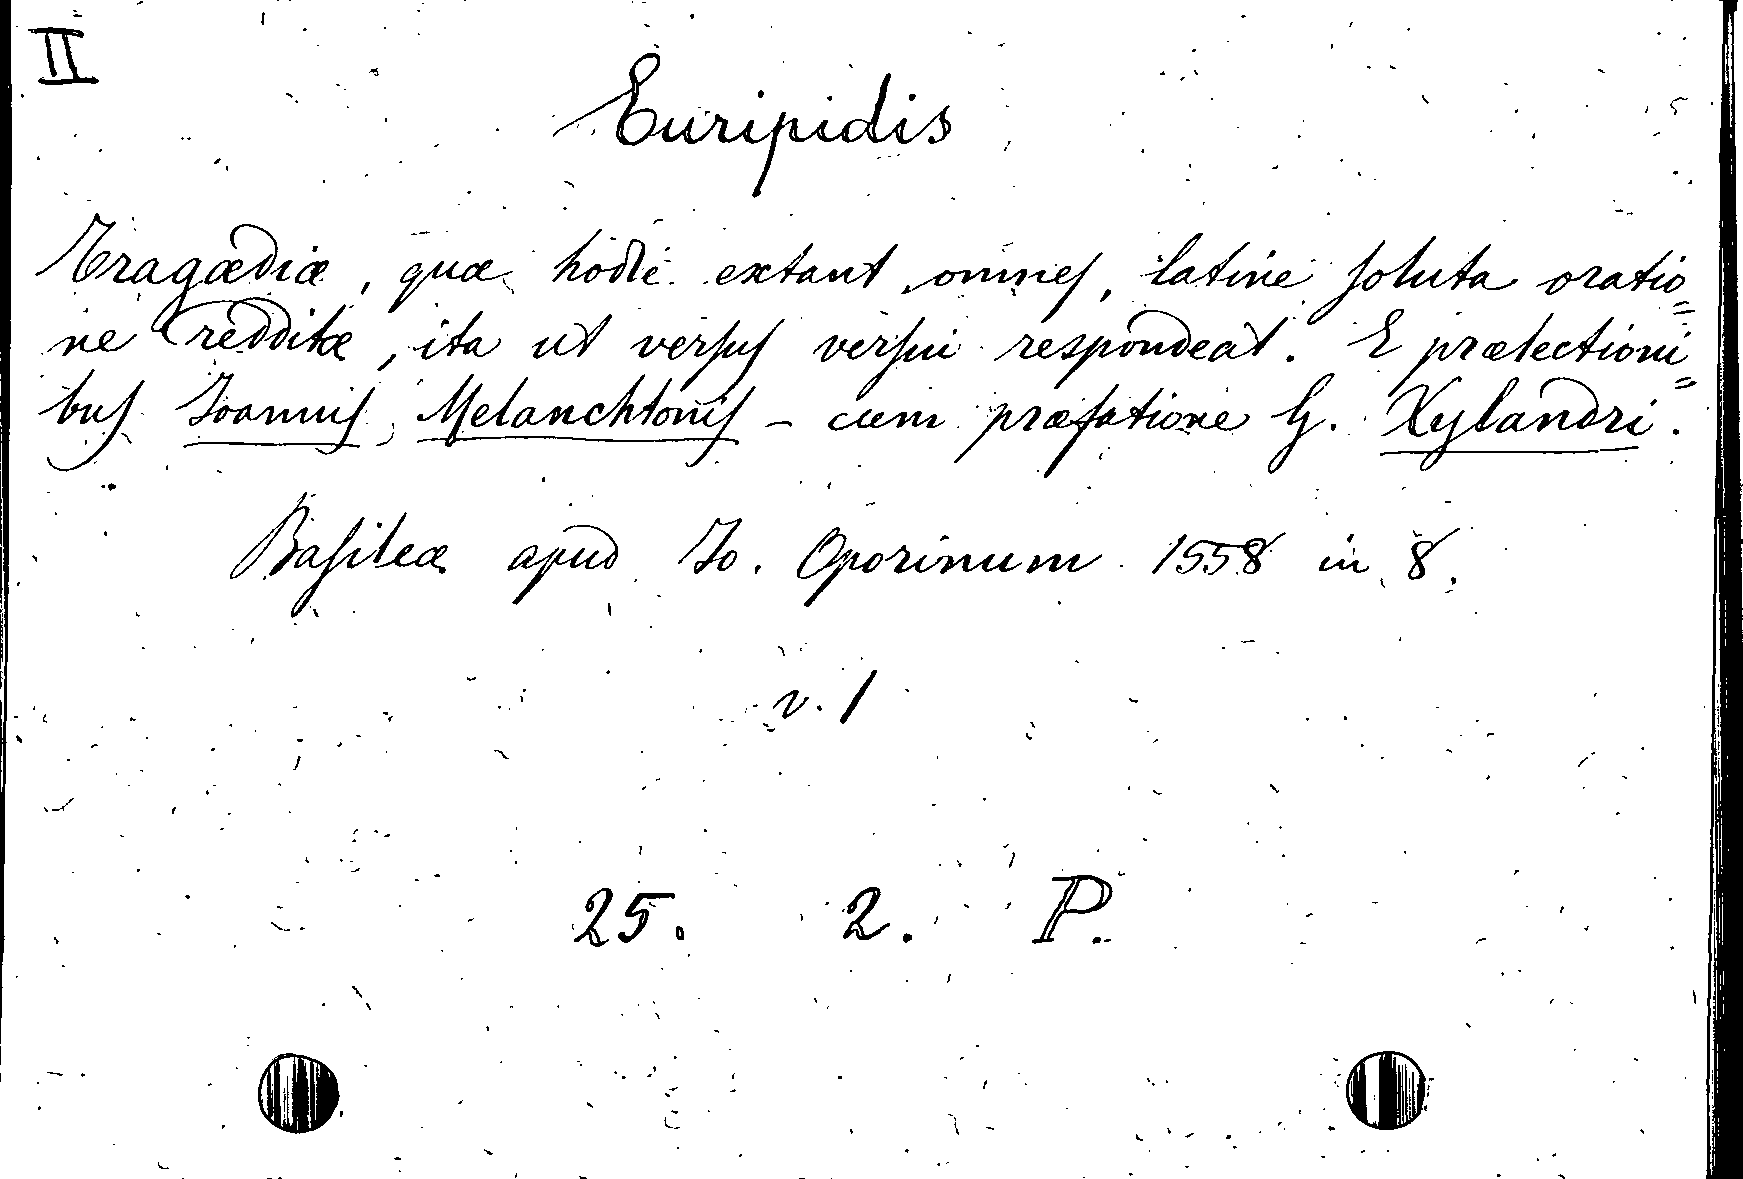 II
Euripidis
Tragœdiæ, quæ hodie extant omnes, latine soluta oratio=
ne redditæ, ita ut versus versui respondeat. E prælectioni=
bus Joannis Melanchtonis - cum præfatione G. Xylandri.
Basileæ apud Jo. Oporinum 1558 in 8.
v. 1
25. 2. P.